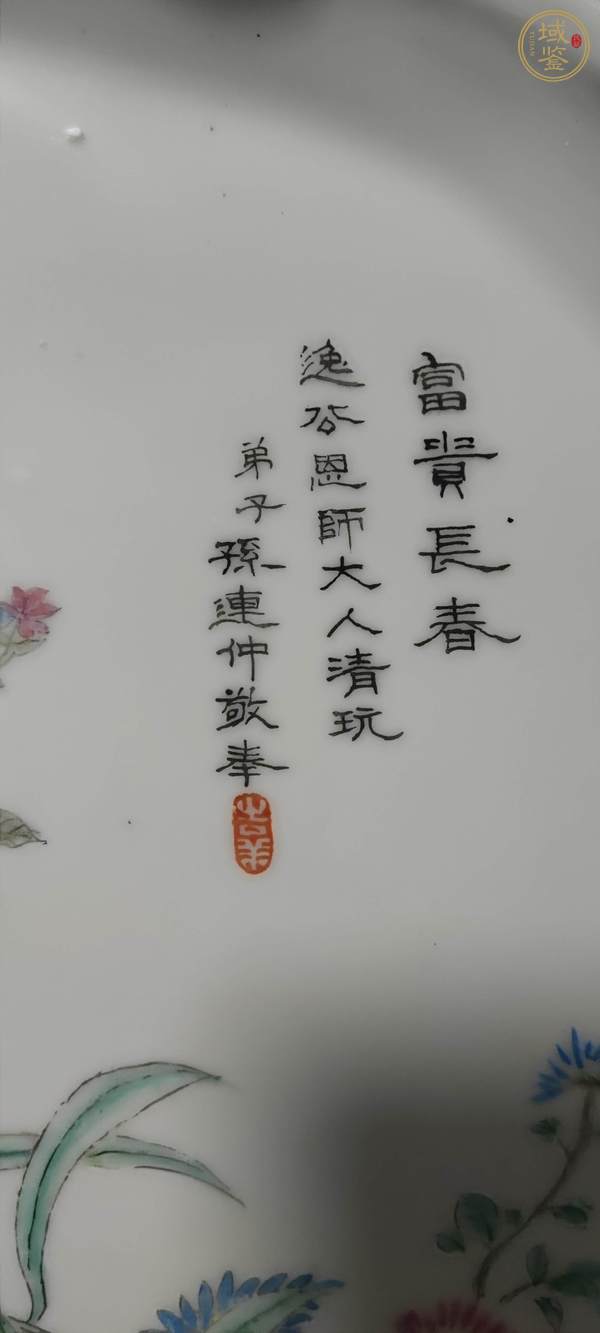 富貴長春
逸公恩師大人清玩
弟子孫連仲敬奉
吉羊
域鉴
YUJIAN